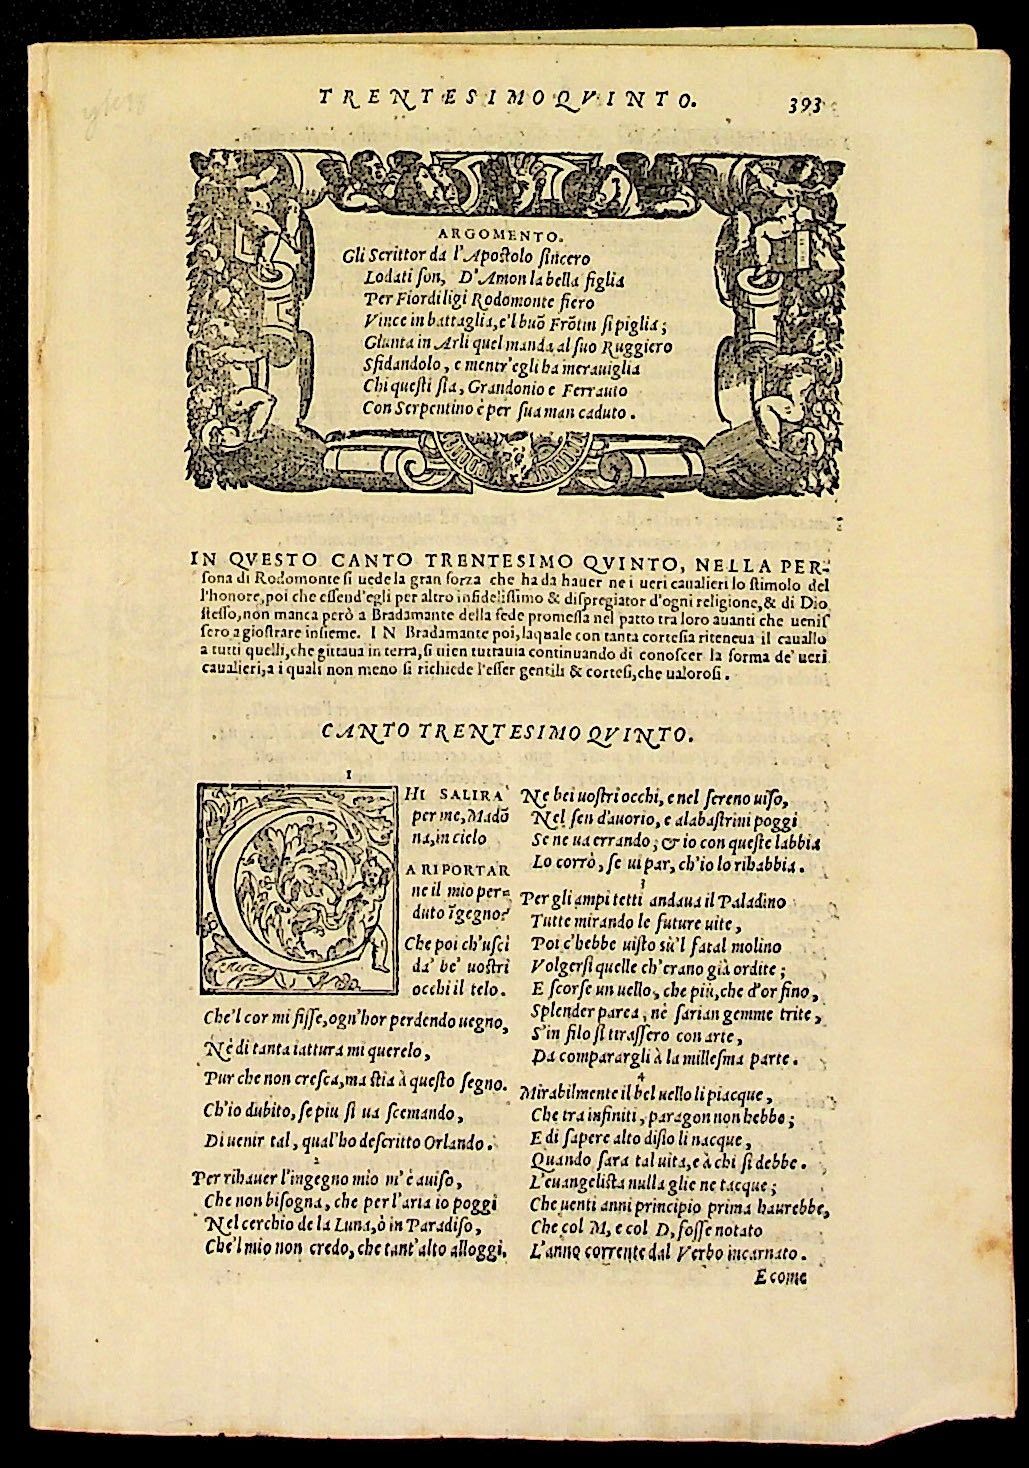 TRENTESIMOQVINTO. 393
ARGOMENTO.
Gli Scrittor da l'Apostolo sincero
Lodati son, D'Amon la bella figlia
Per Fiordiligi Rodomonte fiero
Vince in battaglia, e'l buõ Frõtin si piglia;
Giunta in Arli quel manda al suo Ruggiero
Sfidandolo, e mentr'egli ha merauiglia
Chi questi sia, Grandonio e Ferrauio
Con Serpentino è per sua man caduto.
IN QVESTO CANTO TRENTESIMO QVINTO, NELLA PER-
sona di Rodomonte si uede la gran forza che ha da hauer ne i ueri caualieri lo stimolo del
l'honore, poi che essend'egli per altro infidelissimo & dispregiator d'ogni religione, & di Dio
stesso, non manca però a Bradamante della fede promessa nel patto tra loro auanti che uenis
sero a giostrare insieme. IN Bradamante poi, laquale con tanta cortesia riteneua il cauallo
a tutti quelli, che gittaua in terra, si uien tuttauia continuando di conoscer la forma de' ueri
caualieri, a i quali non meno si richiede l'esser gentili & cortesi, che ualorosi.
CANTO TRENTESIMO QVINTO.
1
CHI SALIRA'
per me, Madõ
na, in cielo
A RIPORTAR
ne il mio per=
duto ĩgegno?
Che poi ch'uscì
da' be' uostri
occhi il telo.
Che'l cor mi fisse, ogn'hor perdendo uegno,
Nè di tanta iattura mi querelo,
Pur che non cresca, ma stia à questo segno.
Ch'io dubito, se piu si ua scemando,
Di uenir tal, qual'ho descritto Orlando.
2
Per rihauer l'ingegno mio m'è auiso,
Che non bisogna, che per l'aria io poggi
Nel cerchio de la Luna, ò in Paradiso,
Che'l mio non credo, che tant'alto alloggi.
Ne bei uostri occhi, e nel sereno uiso,
Nel sen d'auorio, e alabastrini poggi
Se ne ua errando; & io con queste labbia
Lo corrò, se ui par, ch'io lo rihabbia.
3
Per gli ampi tetti andaua il Paladino
Tutte mirando le future uite,
Poi c'hebbe uisto sù'l fatal molino
Volgersi quelle ch'erano già ordite;
E scorse un uello, che più, che d'or fino,
Splender parea, nè sarian gemme trite,
S'in filo si tirassero con arte,
Da comparargli à la millesma parte.
4
Mirabilmente il bel uello li piacque,
Che tra infiniti, paragon non hebbe;
E di sapere alto disio li nacque,
Quando sara tal uita, e à chi si debbe.
L'euangelista nulla glie ne tacque;
Che uenti anni principio prima haurebbe,
Che col M, e col D, fosse notato
L'anno corrente dal Verbo incarnato.
E come